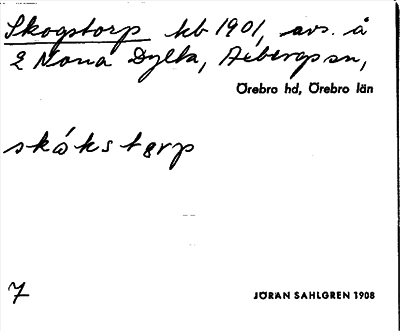 Skogstorp kb 1901, avs. å
2 Norra Dylta, Axbergs sn,
Örebro hd, Örebro län
skókstørp
7
JÖRAN SAHLGREN 1908